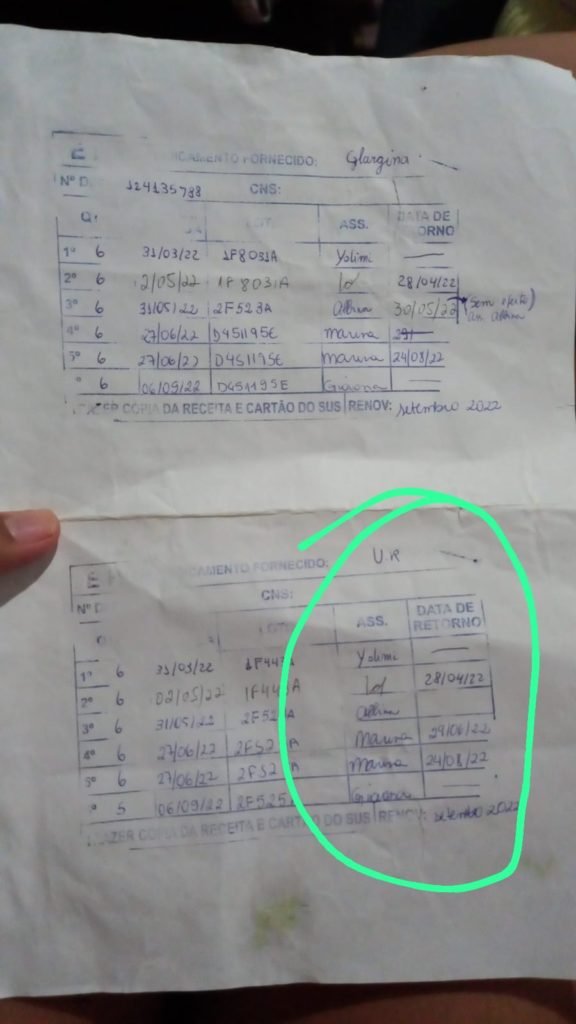 É
CAMENTO FORNECIDO: Glargina
Nº D 124135788 CNS:
Q ASS. DATA DE
ORNO
1º 6 31/03/22 1F8031A Yolimi —
2º 6 2/05/22 1F8031A 28/04/22
3º 6 31/05/22 2F523A 30/05/22 (sem efeito)
4º 6 27/06/22 D451195E Maura
5º 6 27/06/22 D451195E Maura 24/08/22
º 6 06/09/22 D451195E Giovana —
AZER COPIA DA RECEITA E CARTÃO DO SUS RENOV: setembro 2022
É
CAMENTO FORNECIDO: U.R
CNS:
Nº D
ASS. DATA DE
RETORNO
1º 6 31/03/22 1F443A Yolimi —
2º 6 02/05/22 1F443A 28/04/22
3º 6 31/05/22 2F52 A
4º 6 27/06/22 2F52 A Maura 29/06/22
5º 6 27/06/22 2F52 A Maura 24/08/22
º 5 06/09/22 2F525 Giovana —
AZER COPIA DA RECEITA E CARTÃO DO SUS RENOV: setembro 2022